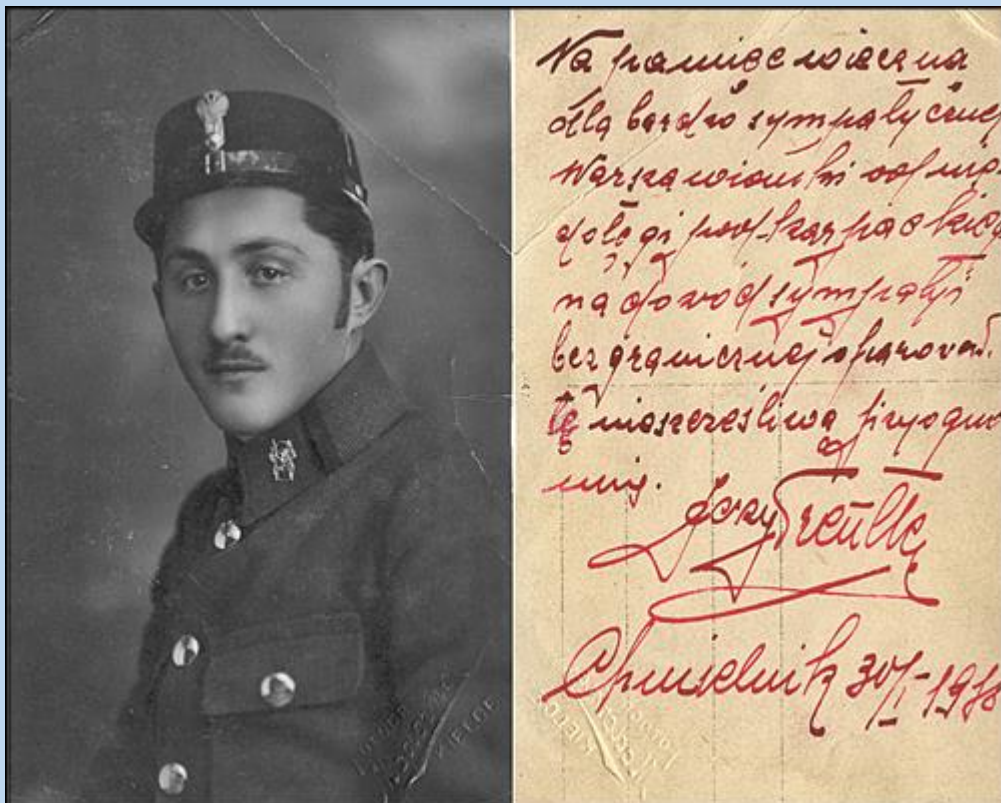 Na pamięć wieczną
dla bardzo sympatycznej
Warszawianki od nie-
dołęgi pod-karpackiego
na dowód sympatji
bez granicznej ofiarował.
tę nieszczęśliwą fizyogno-
mię.
Jerzy
Chmielnik 30/I-1938
KIELCE